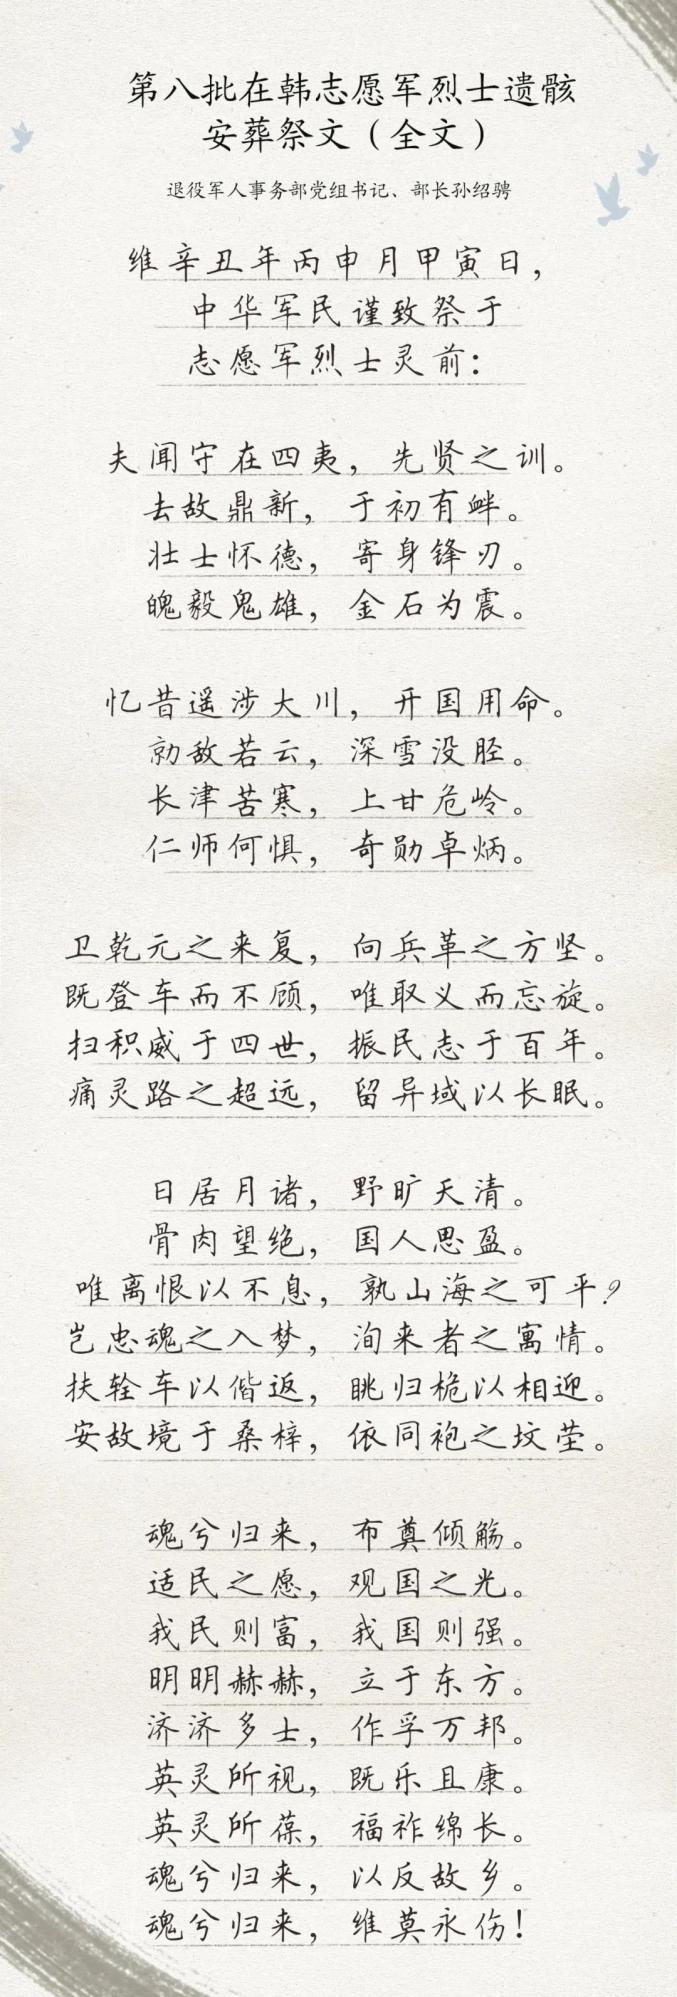 第八批在韩志愿军烈士遗骸
安葬祭文（全文）
退役军人事务部党组书记、部长孙绍骋
维辛丑年丙申月甲寅日，
中华军民谨致祭于
志愿军烈士灵前：
夫闻守在四夷，先贤之训。
去故鼎新，于初有衅。
壮士怀德，寄身锋刃。
魄毅鬼雄，金石为震。
忆昔遥涉大川，开国用命。
勍敌若云，深雪没胫。
长津苦寒，上甘危岭。
仁师何惧，奇勋卓炳。
卫乾元之来复，向兵革之方坚。
既登车而不顾，唯取义而忘旋。
扫积威于四世，振民志于百年。
痛灵路之超远，留异域以长眠。
日居月诸，野旷天清。
骨肉望绝，国人思盈。
唯离恨以不息，孰山海之可平？
岂忠魂之入梦，洵来者之寓情。
扶辁车以偕返，眺归桅以相迎。
安故境于桑梓，依同袍之坟茔。
魂兮归来，布奠倾觞。
适民之愿，观国之光。
我民则富，我国则强。
明明赫赫，立于东方。
济济多士，作孚万邦。
英灵所视，既乐且康。
英灵所葆，福祚绵长。
魂兮归来，以反故乡。
魂兮归来，维莫永伤！